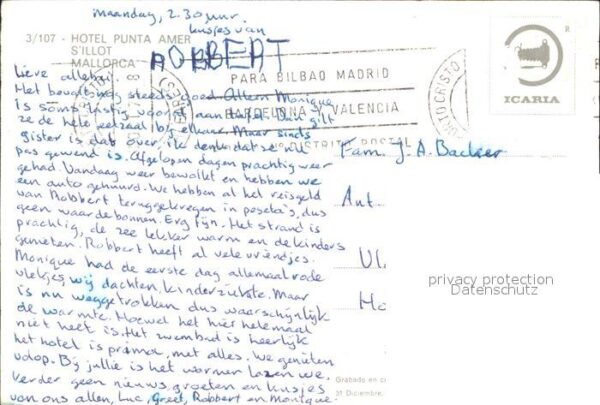 Maandag, 2.30 uur.
kusjes van
ROBBERT
3/107 - HOTEL PUNTA AMER
S'ILLOT
MALLORCA
PARA BILBAO MADRID
BARCELONA Y VALENCIA
DISTRITO POSTAL
ICARIA
®
Lieve allebei.
Het bevalt nog steeds goed. Alleen Monique
is soms lastig vooral aan tafel. Dan gilt
ze de hele eetzaal bij elkaar. Maar sinds
gister is dat over, ik denk dat ze nu
pas gewend is. Afgelopen dagen prachtig weer
gehad. Vandaag weer bewolkt en hebben we
een auto gehuurd. We hebben al het reisgeld
van Robbert teruggekregen in peseta's, dus
geen waardebonnen. Erg fijn. Het strand is
prachtig, de zee lekker warm en de kinders
genieten. Robbert heeft al vele vriendjes.
Monique had de eerste dag allemaal rode
vlekjes, wij dachten kinderziekte. Maar
is nu weggetrokken dus waarschijnlijk
de warmte. Hoewel het hier helemaal
niet heet is. Het zwembad is heerlijk
het hotel is prima, met alles. We genieten
volop. Bij jullie is het warmer lazen we.
Verder geen nieuws, groeten en kusjes
van ons allen, Luc, Greet, Robbert en Monique.
Fam. J. A. Backer
Ant
Vl
Ho
privacy protection
Datenschutz
Grabado en
31 Diciembre,